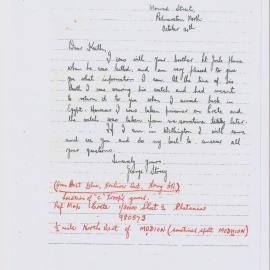 Street,
Palmerston North
October 30th
Dear
I was with your brother Lt Jack
when he was killed, and I am very pleased to give
you what information I can. At the time of his
Death I was among his watch and had meant
to return it to you when I arrived back in
Egypt. However I was taken prisoner on Crete and
the watch was taken from me sometime later.
If I am in Wellington I will come
and see you and do my best to answer all
your questions.
Sincerely yours,
George
(
Location of "C" Troop's guns.
Ref Map Crete
980573
½ mile North East of MODION (sometimes spelt MODHION)